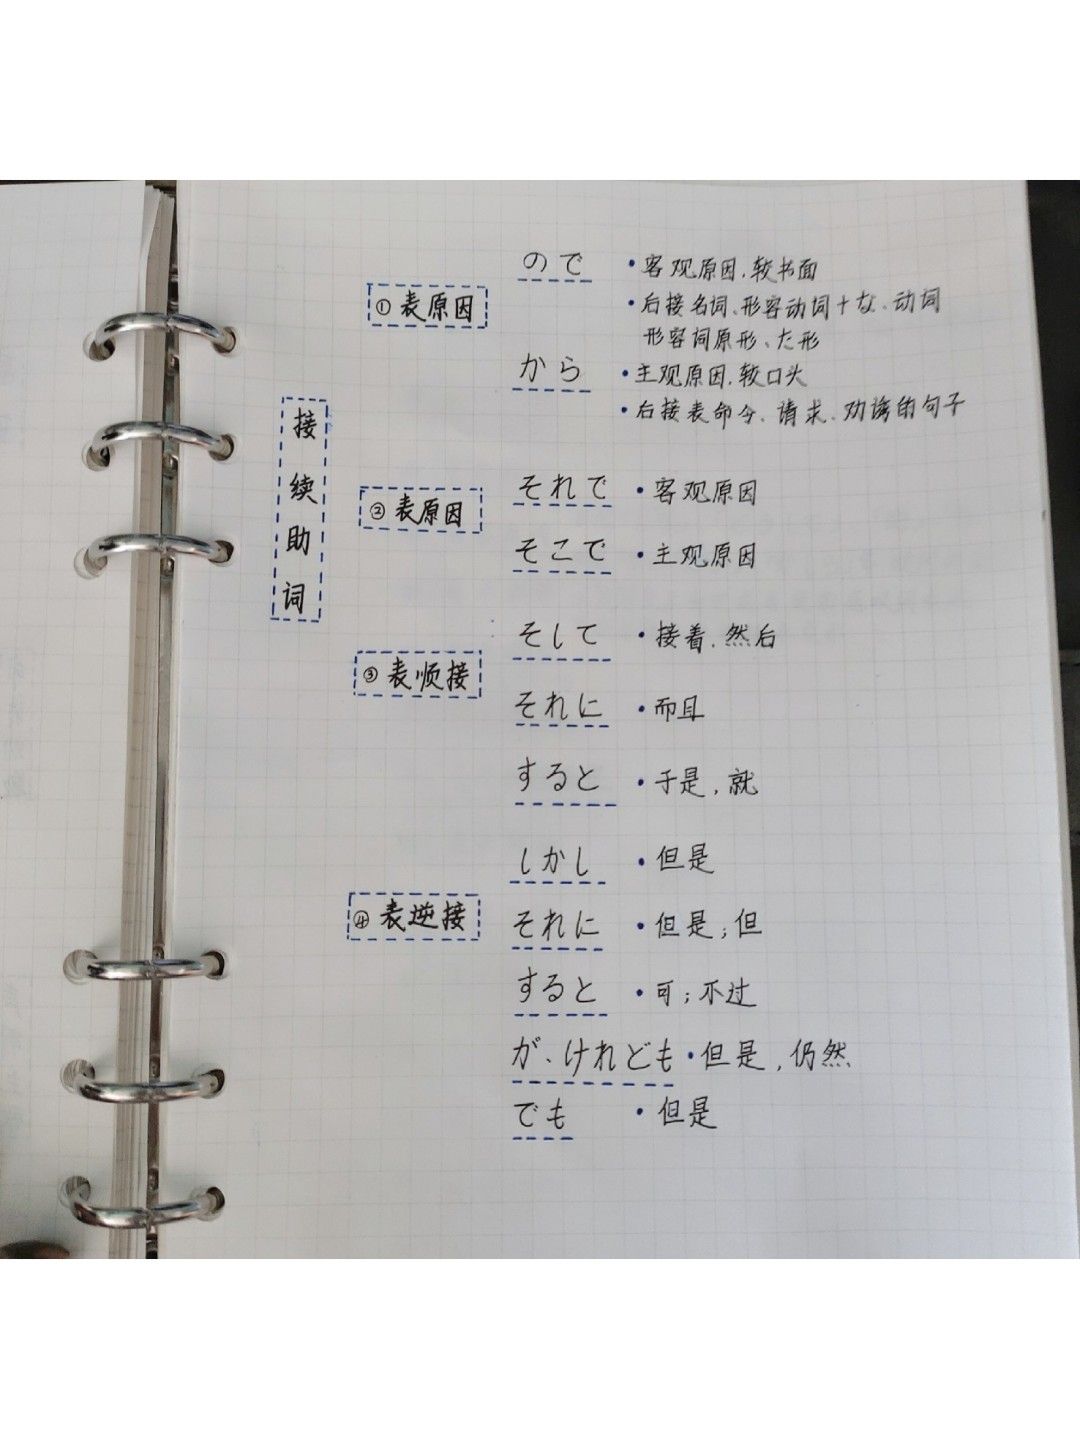 接续助词
①表原因
ので
•客观原因.较书面
•后接名词、形容动词+な、动词
形容词原形、た形
から
•主观原因.较口头
•后接表命令、请求、劝诱的句子
②表原因
それで •客观原因
そこで •主观原因
③表顺接
そして •接着.然后
それに •而且
すると •于是,就
④表逆接
しかし •但是
それに •但是;但
すると •可;不过
が、けれども •但是,仍然
でも •但是